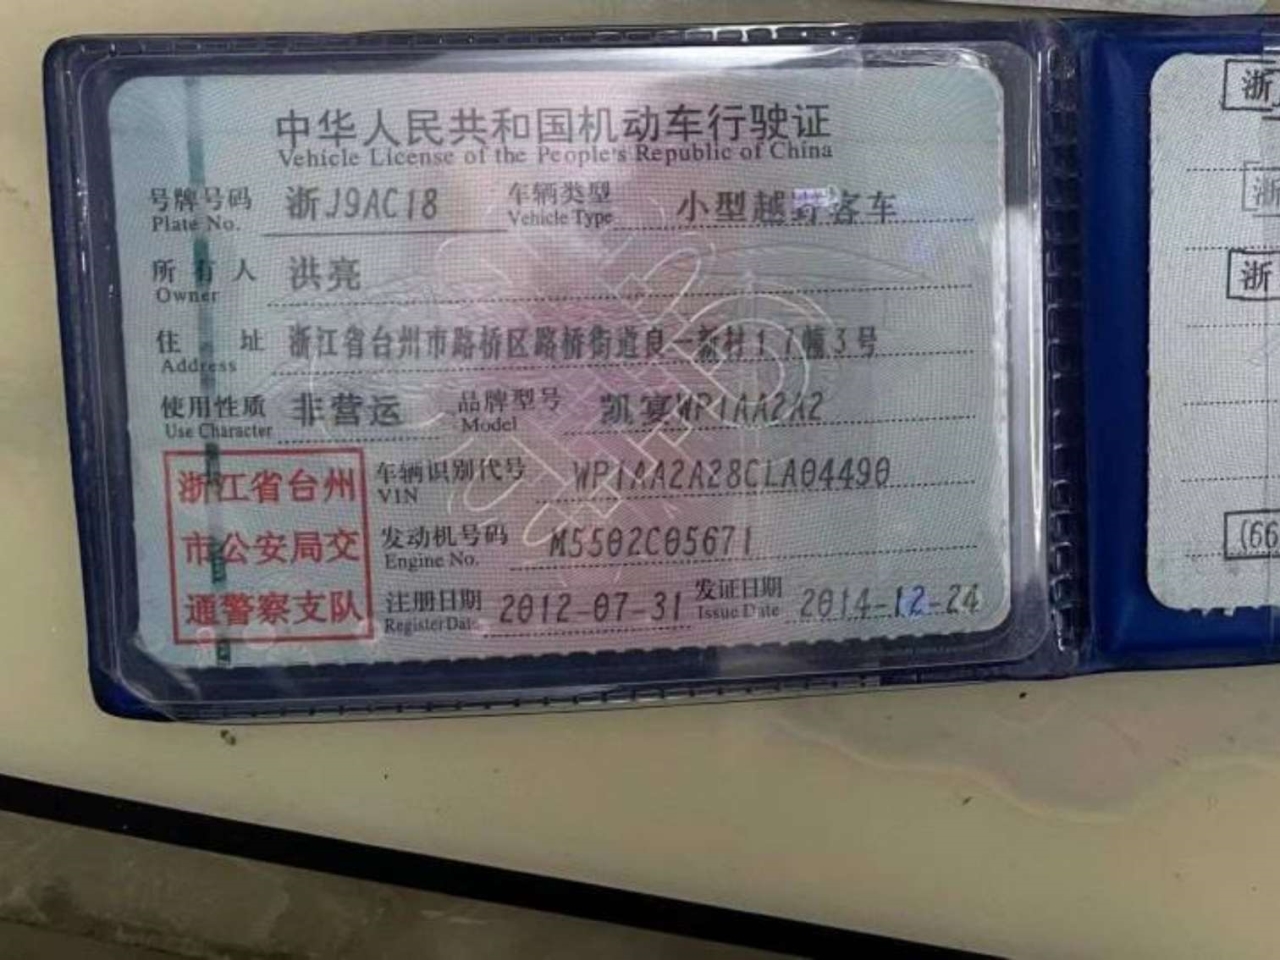 中华人民共和国机动车行驶证
Vehicle License of the People's Republic of China
号牌号码 浙J9AC18 车辆类型 小型越野客车
Plate No. Vehicle Type
所有人 洪亮
Owner
住址 浙江省台州市路桥区路桥街道良一新村17幢3号
Address
使用性质 非营运 品牌型号 凯宴WP1AA2A2
Use Character Model
浙江省台州
市公安局交
通警察支队
车辆识别代号 WP1AA2A28CLA04490
VIN
发动机号码 M5502C05671
Engine No.
注册日期 2012-07-31 发证日期 2014-12-24
Register Date Issue Date
浙
浙
浙
(66